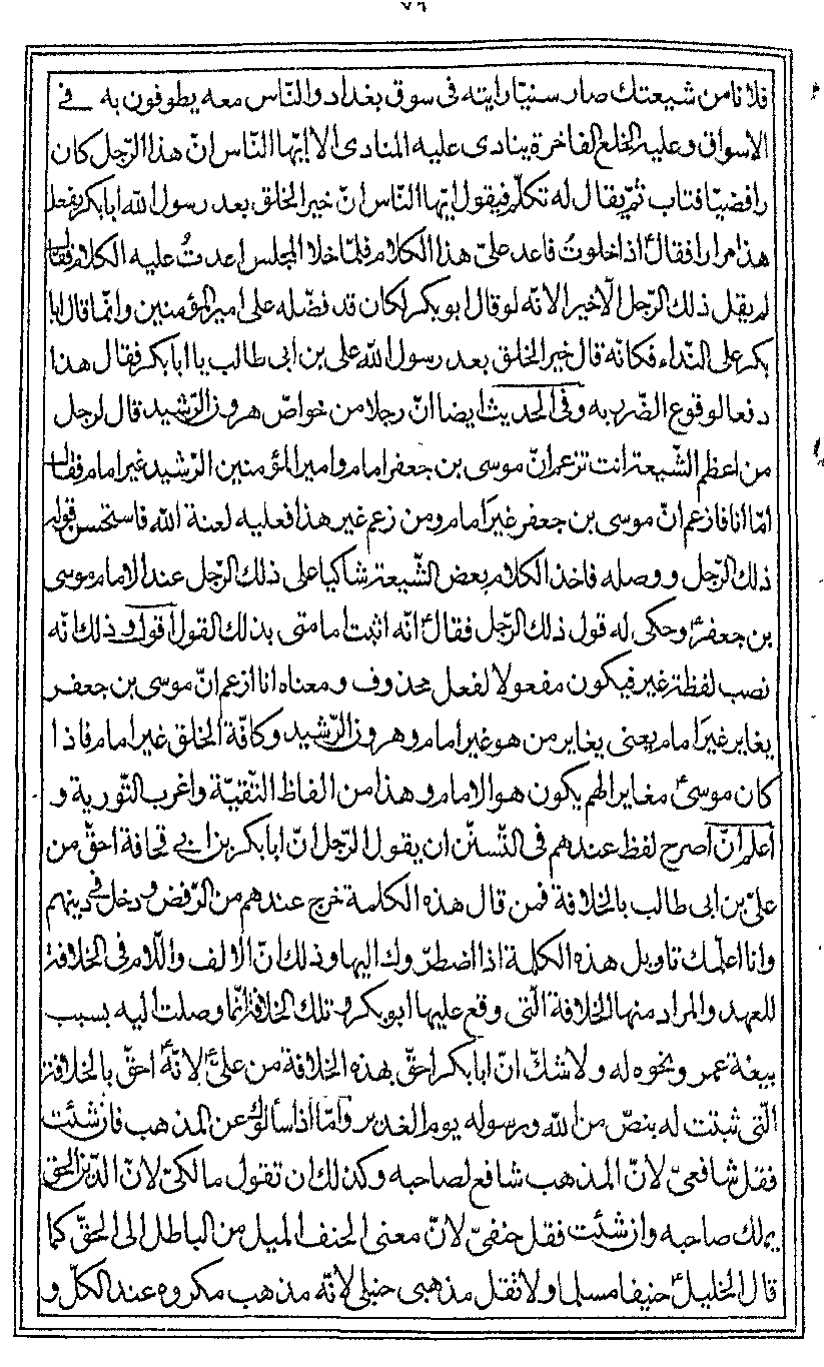 ٧٦
فلانا من شيعتك صار سنيّا رايته فى سوق بغداد والنّاس معه يطوفون به فى
الاسواق وعليه الخلع الفاخرة ينادى عليه المنادى الا ايّها النّاس انّ هذا الرّجل كان
رافضيّا فتاب ثمّ يقال له تكلّم فيقول ايّها النّاس انّ خير الخلق بعد رسول الله ابا بكر يفعل
هذا مرارا فقال ع اذا خلوتُ فاعد علىّ هذا الكلام فلمّا خلا المجلس اعدتُ عليه الكلام فقال
لم يقل ذلك الرّجل الّا خيرا لانّه لو قال ابو بكر لكان قد فضّله على امير المؤمنين وانّما قال ابا
بكر على النّداء فكانّه قال خير الخلق بعد رسول الله على بن ابى طالب يا ابا بكر فقال هذا
دفعا لوقوع الضّرر به وفى الحديث ايضا انّ رجلا من خواصّ هرون الرّشيد قال لرجل
من اعظم الشّيعة انت تزعم انّ موسى بن جعفر امام وامير المؤمنين الرّشيد غير امام فقال
امّا انا فازعم انّ موسى بن جعفر غيرَ امام ومن زعم غير هذا فعليه لعنة الله فاستحسن قوله
ذلك الرّجل ووصله فاخذ الكلام بعض الشّيعة شاكيا على ذلك الرّجل عند الامام موسى
بن جعفر ع وحكى له قول ذلك الرّجل فقال ع انّه اثبت امامتى بذلك القول اقول وذلك انّه
نصب لفظة غير فيكون مفعولا لفعل محذوف ومعناه انا ازعم انّ موسى بن جعفر
يغاير غيرَ امام يعنى يغاير من هو غير امام وهرون الرّشيد وكافّة الخلق غير امام فاذا
كان موسى ع مغايرا لهم يكون هو الامام وهذا من الفاظ التّقيّة واغرب التّورية و
اعلم انّ اصرح لفظ عندهم فى التّسنّن ان يقول الرّجل انّ ابا بكر بن ابى قحافة احقّ من
علىّ بن ابى طالب بالخلافة فمن قال هذه الكلمة خرج عندهم من الرّفض ودخل فى دينهم
وانا اعلّمك تاويل هذه الكلمة اذا اضطرّوك اليها وذلك انّ الالف واللّام فى الخلافة
للعهد والمراد منها الخلافة الّتى وقع عليها ابو بكر وتلك الخلافة انّما وصلت اليه بسبب
بيعة عمر ونحوه له ولا شكّ انّ ابا بكر احقّ بهذه الخلافة من علىّ ع لانّه ع احقّ بالخلافة
الّتى ثبتت له بنصّ من الله ورسوله يوم الغدير وامّا اذا سألوك عن المذهب فان شئت
فقل شافعىّ لانّ المذهب شافع لصاحبه وكذلك ان تقول مالكىّ لانّ الدّين الحقّ
يملك صاحبه وان شئت فقل حنفىّ لانّ معنى الحنف الميل من الباطل الى الحقّ كما
قال الخليل ع حنيفا مسلما ولا تقل مذهبى حنبلى لانّه مذهب مكروه عند الكلّ و